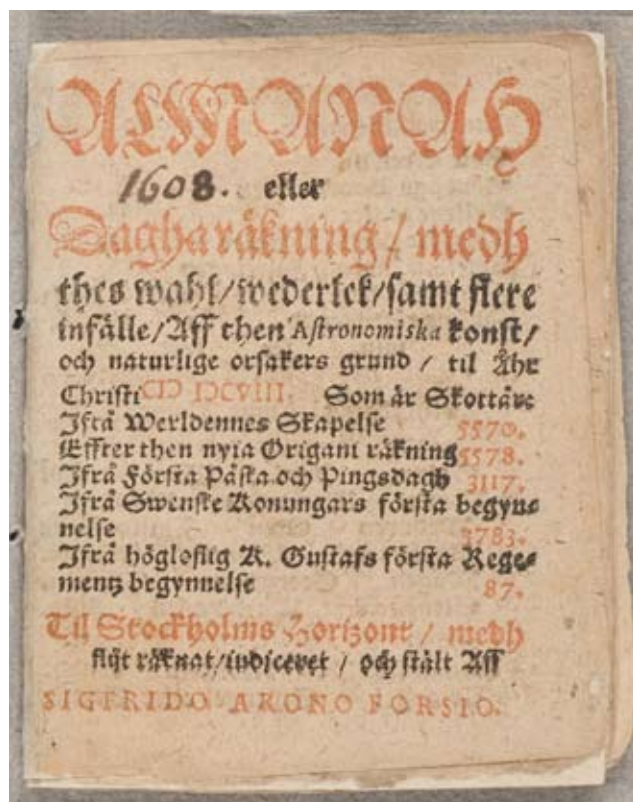 ALMANAH
1608. eller
Dagharäkning / medh
thes wahl / wederlek / samt flere
infälle / Aff then Astronomiska konst /
och naturlige orsakers grund / til Åhr
Christi CIↃ IↃCVIII. Som är Skottåår
Ifrå Werldennes Skapelse 5570.
Effter then nyia Origani räkning 5578.
Ifrå Första Påska och Pingsdagh 3117.
Ifrå Swenske Konungars första begyn-
nelse 3783.
Ifrå högloflig K. Gustafs första Rege-
mentz begynnelse 87.
Til Stockholms Horizont / medh
flijt räknat / indiceret / och stält Aff
SIGFRIDO ARONO FORSIO.